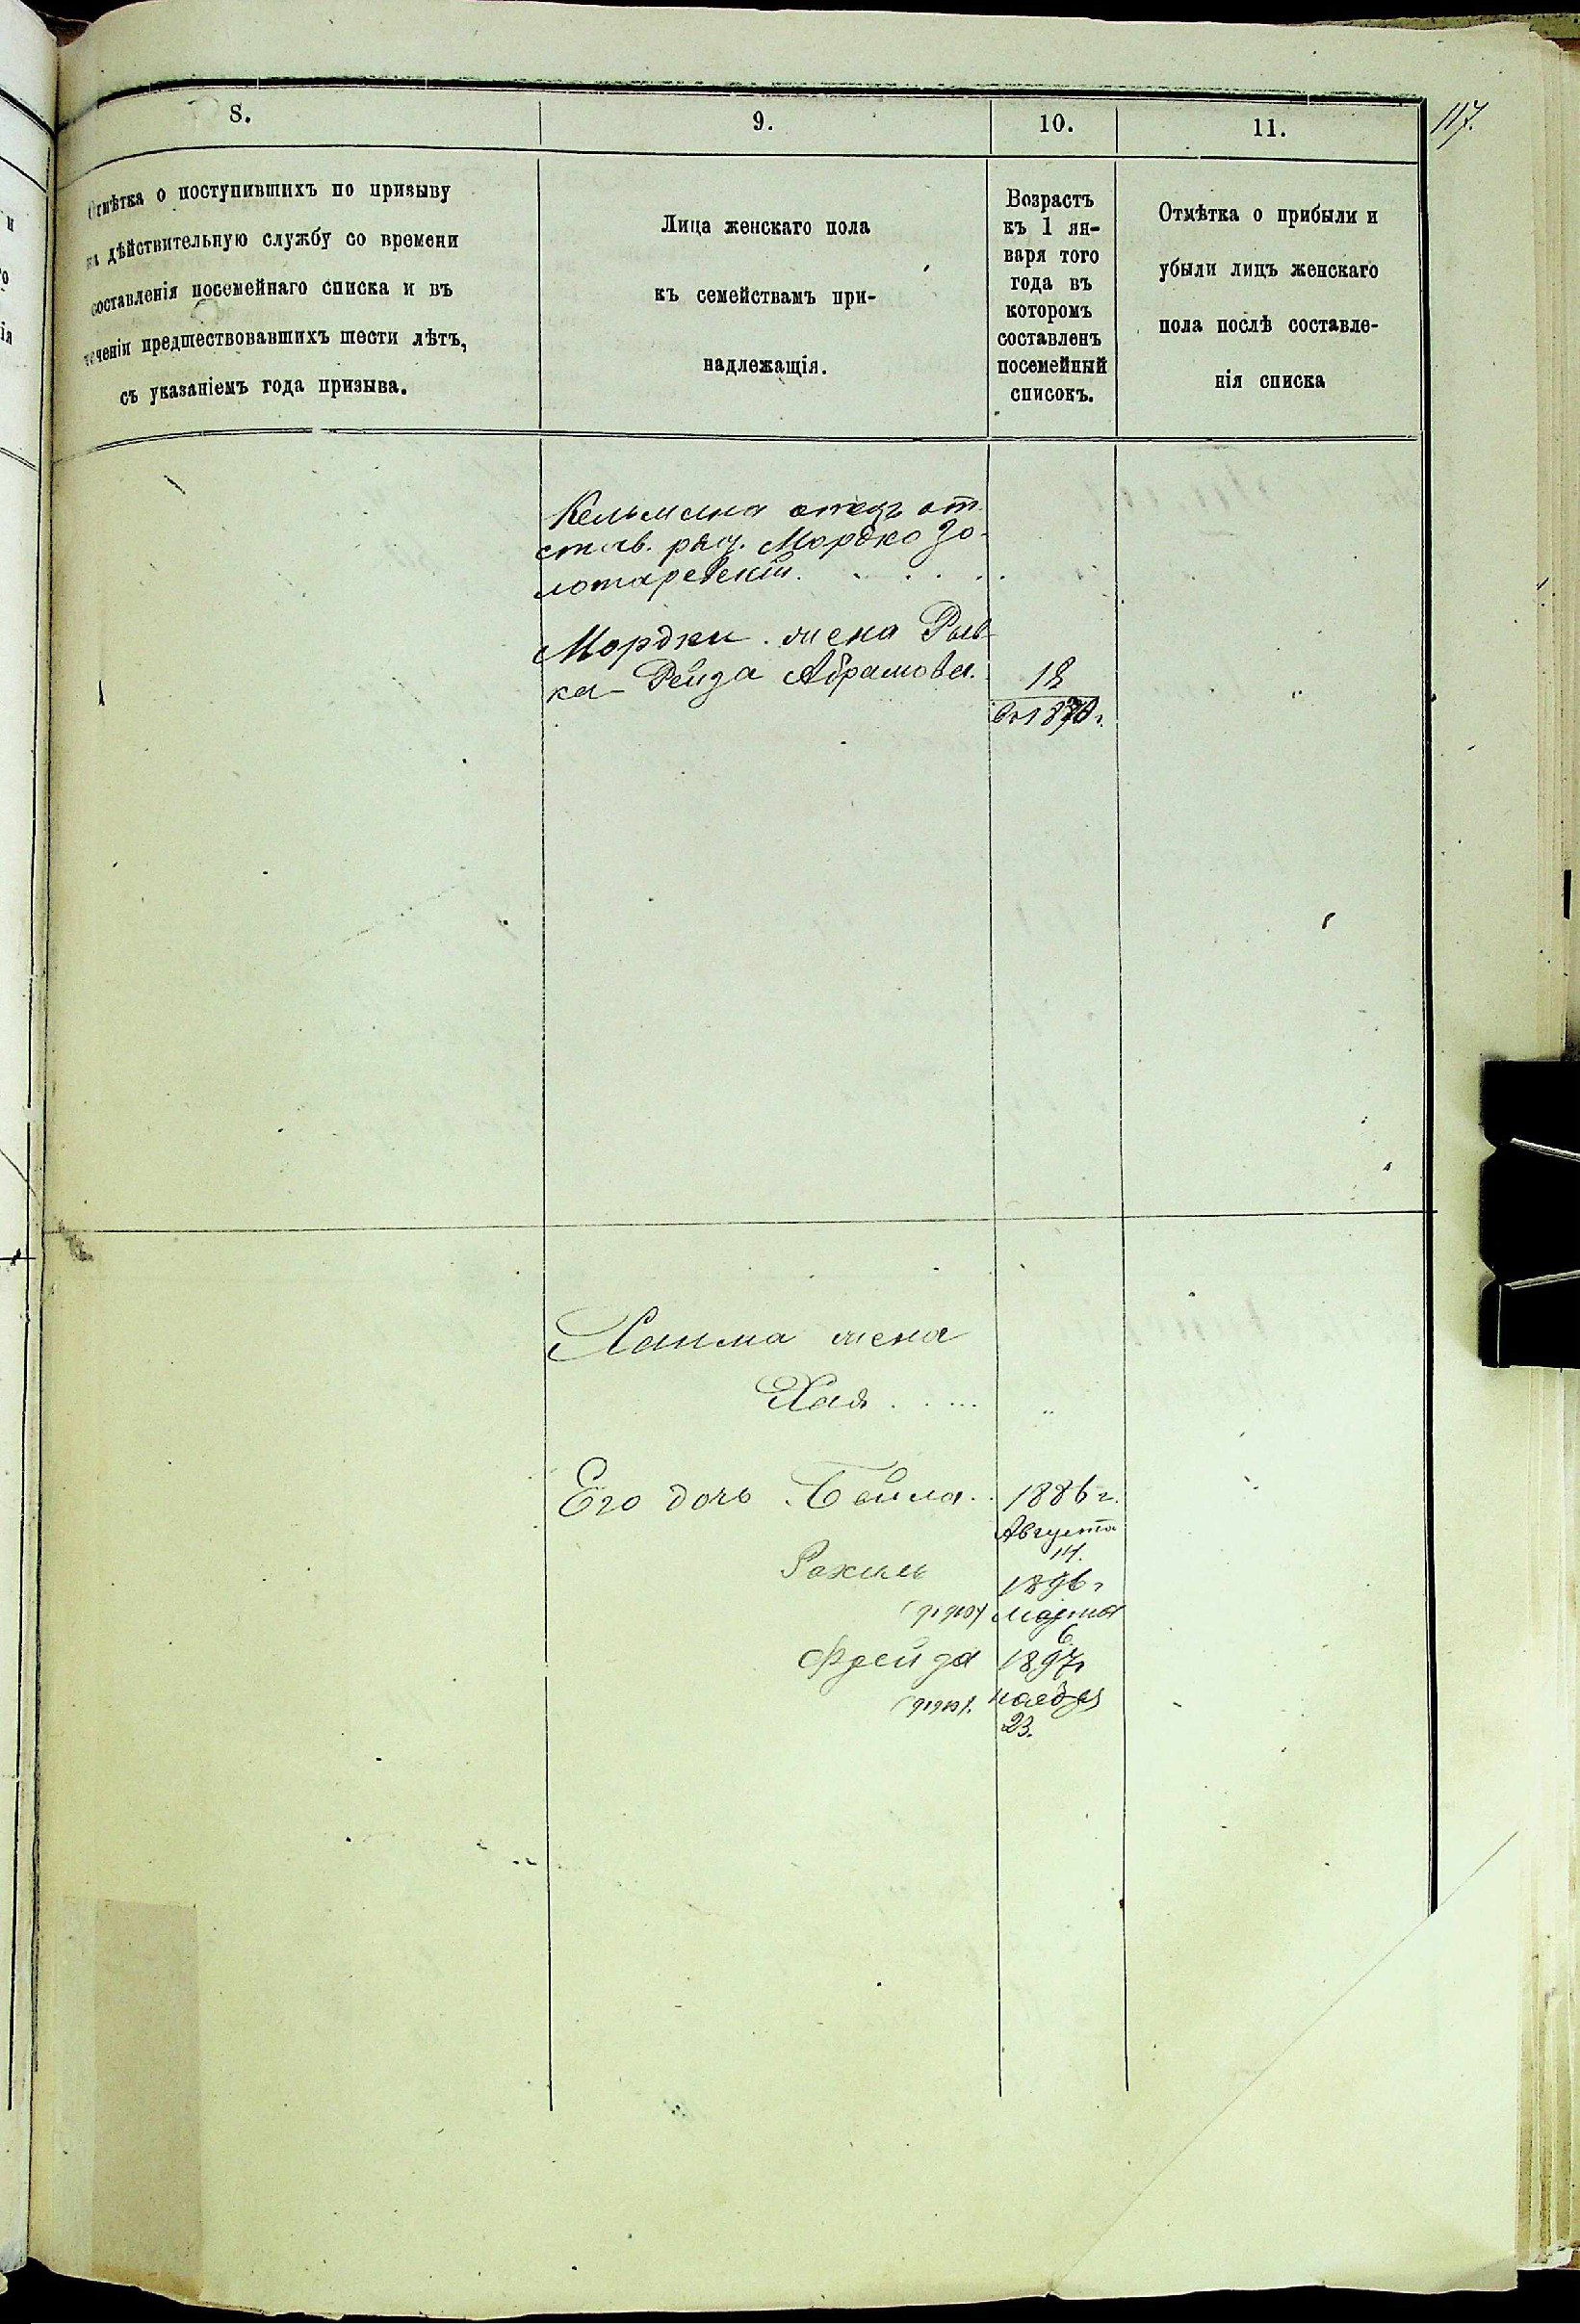 117.
8.
9.
10.
11.
Отмѣтка о поступившихъ по призыву
на дѣйствительную службу со времени
составленія посемейнаго списка и въ
теченіи предшествовавшихъ шести лѣтъ,
съ указаніемъ года призыва.
Лица женскаго пола
къ семействамъ при-
надлежащія.
Возрастъ
къ 1 ян-
варя того
года въ
которомъ
составленъ
посемейный
списокъ.
Отмѣтка о прибыли и
убыли лицъ женскаго
пола послѣ составле-
нія списка
Кельмана отецъ от
став. ряд. Мордко Зо-
лотаревскій.
Мордки жена Рыв-
ка-Рейза Абрамова.
18
въ 1870 г.
Хаима жена
Хая . . ...
Его дочь Бейла..
1886 г.
Августа
14.
Рахиль
1896 г
марта
6
Фрейда
1897 г
ноября
23.